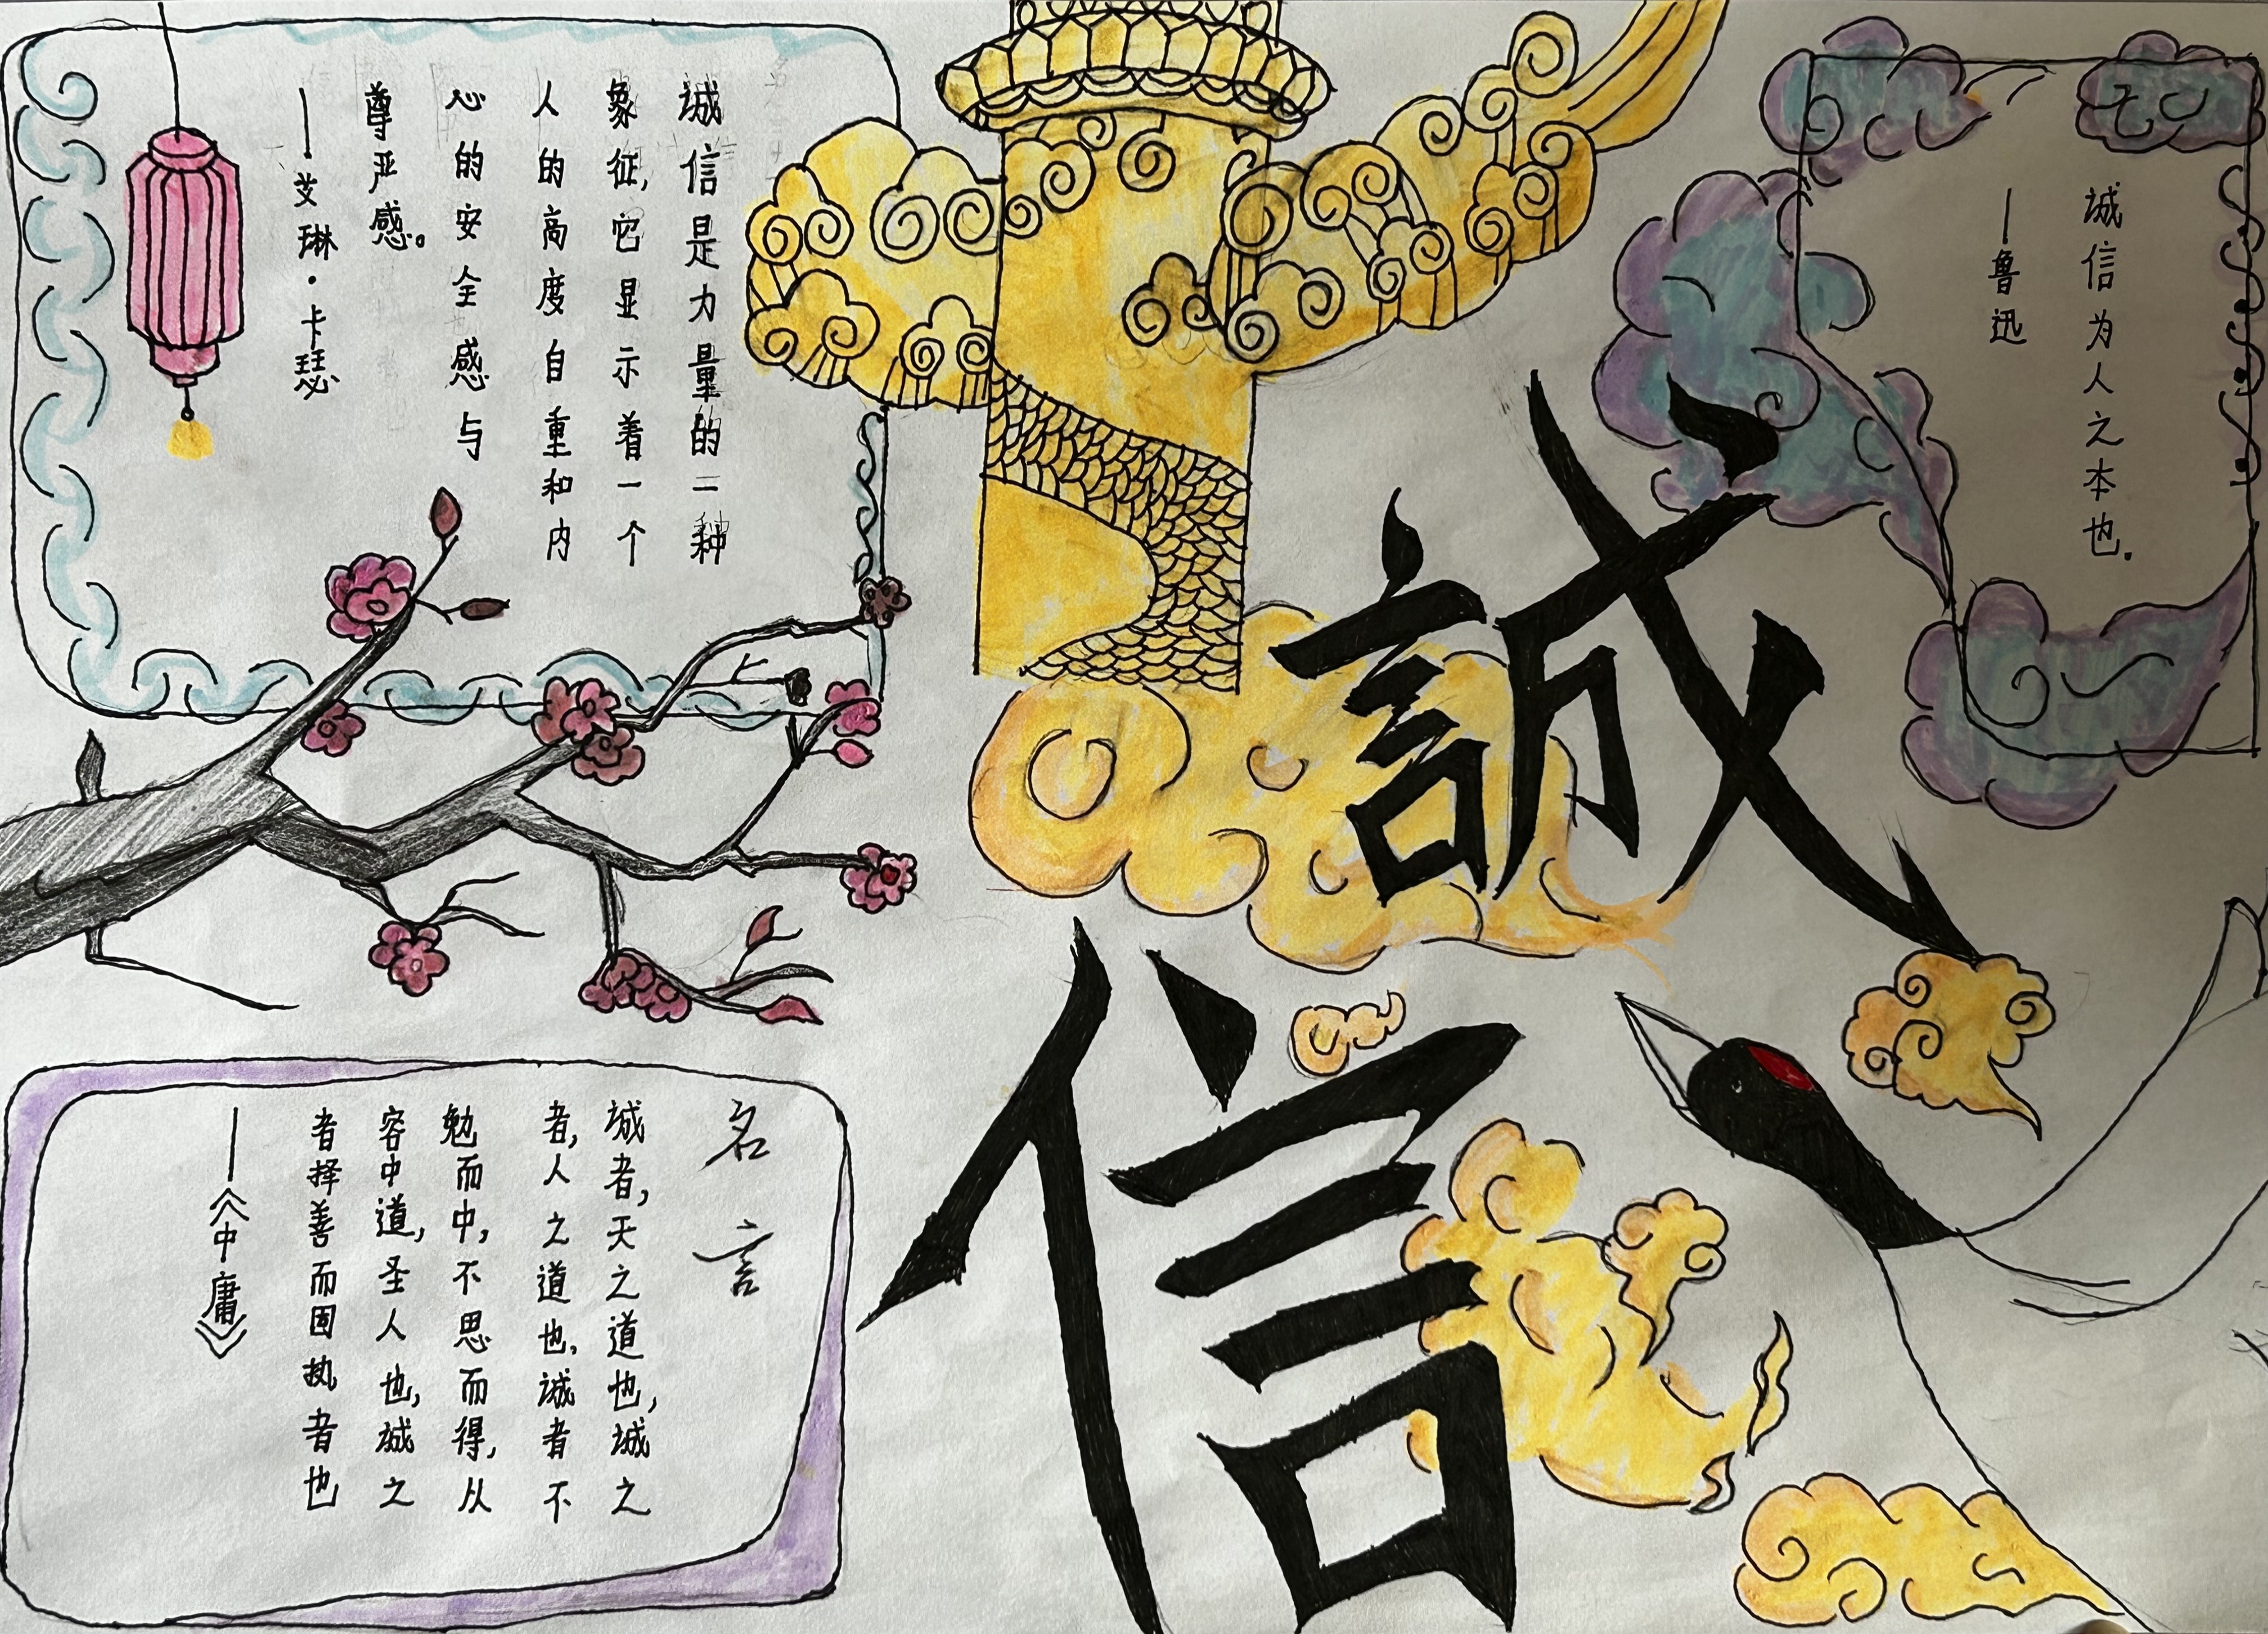 誠
信
诚信为人之本也.
——鲁迅
诚信是力量的一种
象征,它显示着一个
人的高度自重和内
心的安全感与
尊严感。
——艾琳·卡瑟
名言
诚者,天之道也,诚之
者,人之道也,诚者不
勉而中,不思而得,从
容中道,圣人也,诚之
者择善而固执者也
——《中庸》